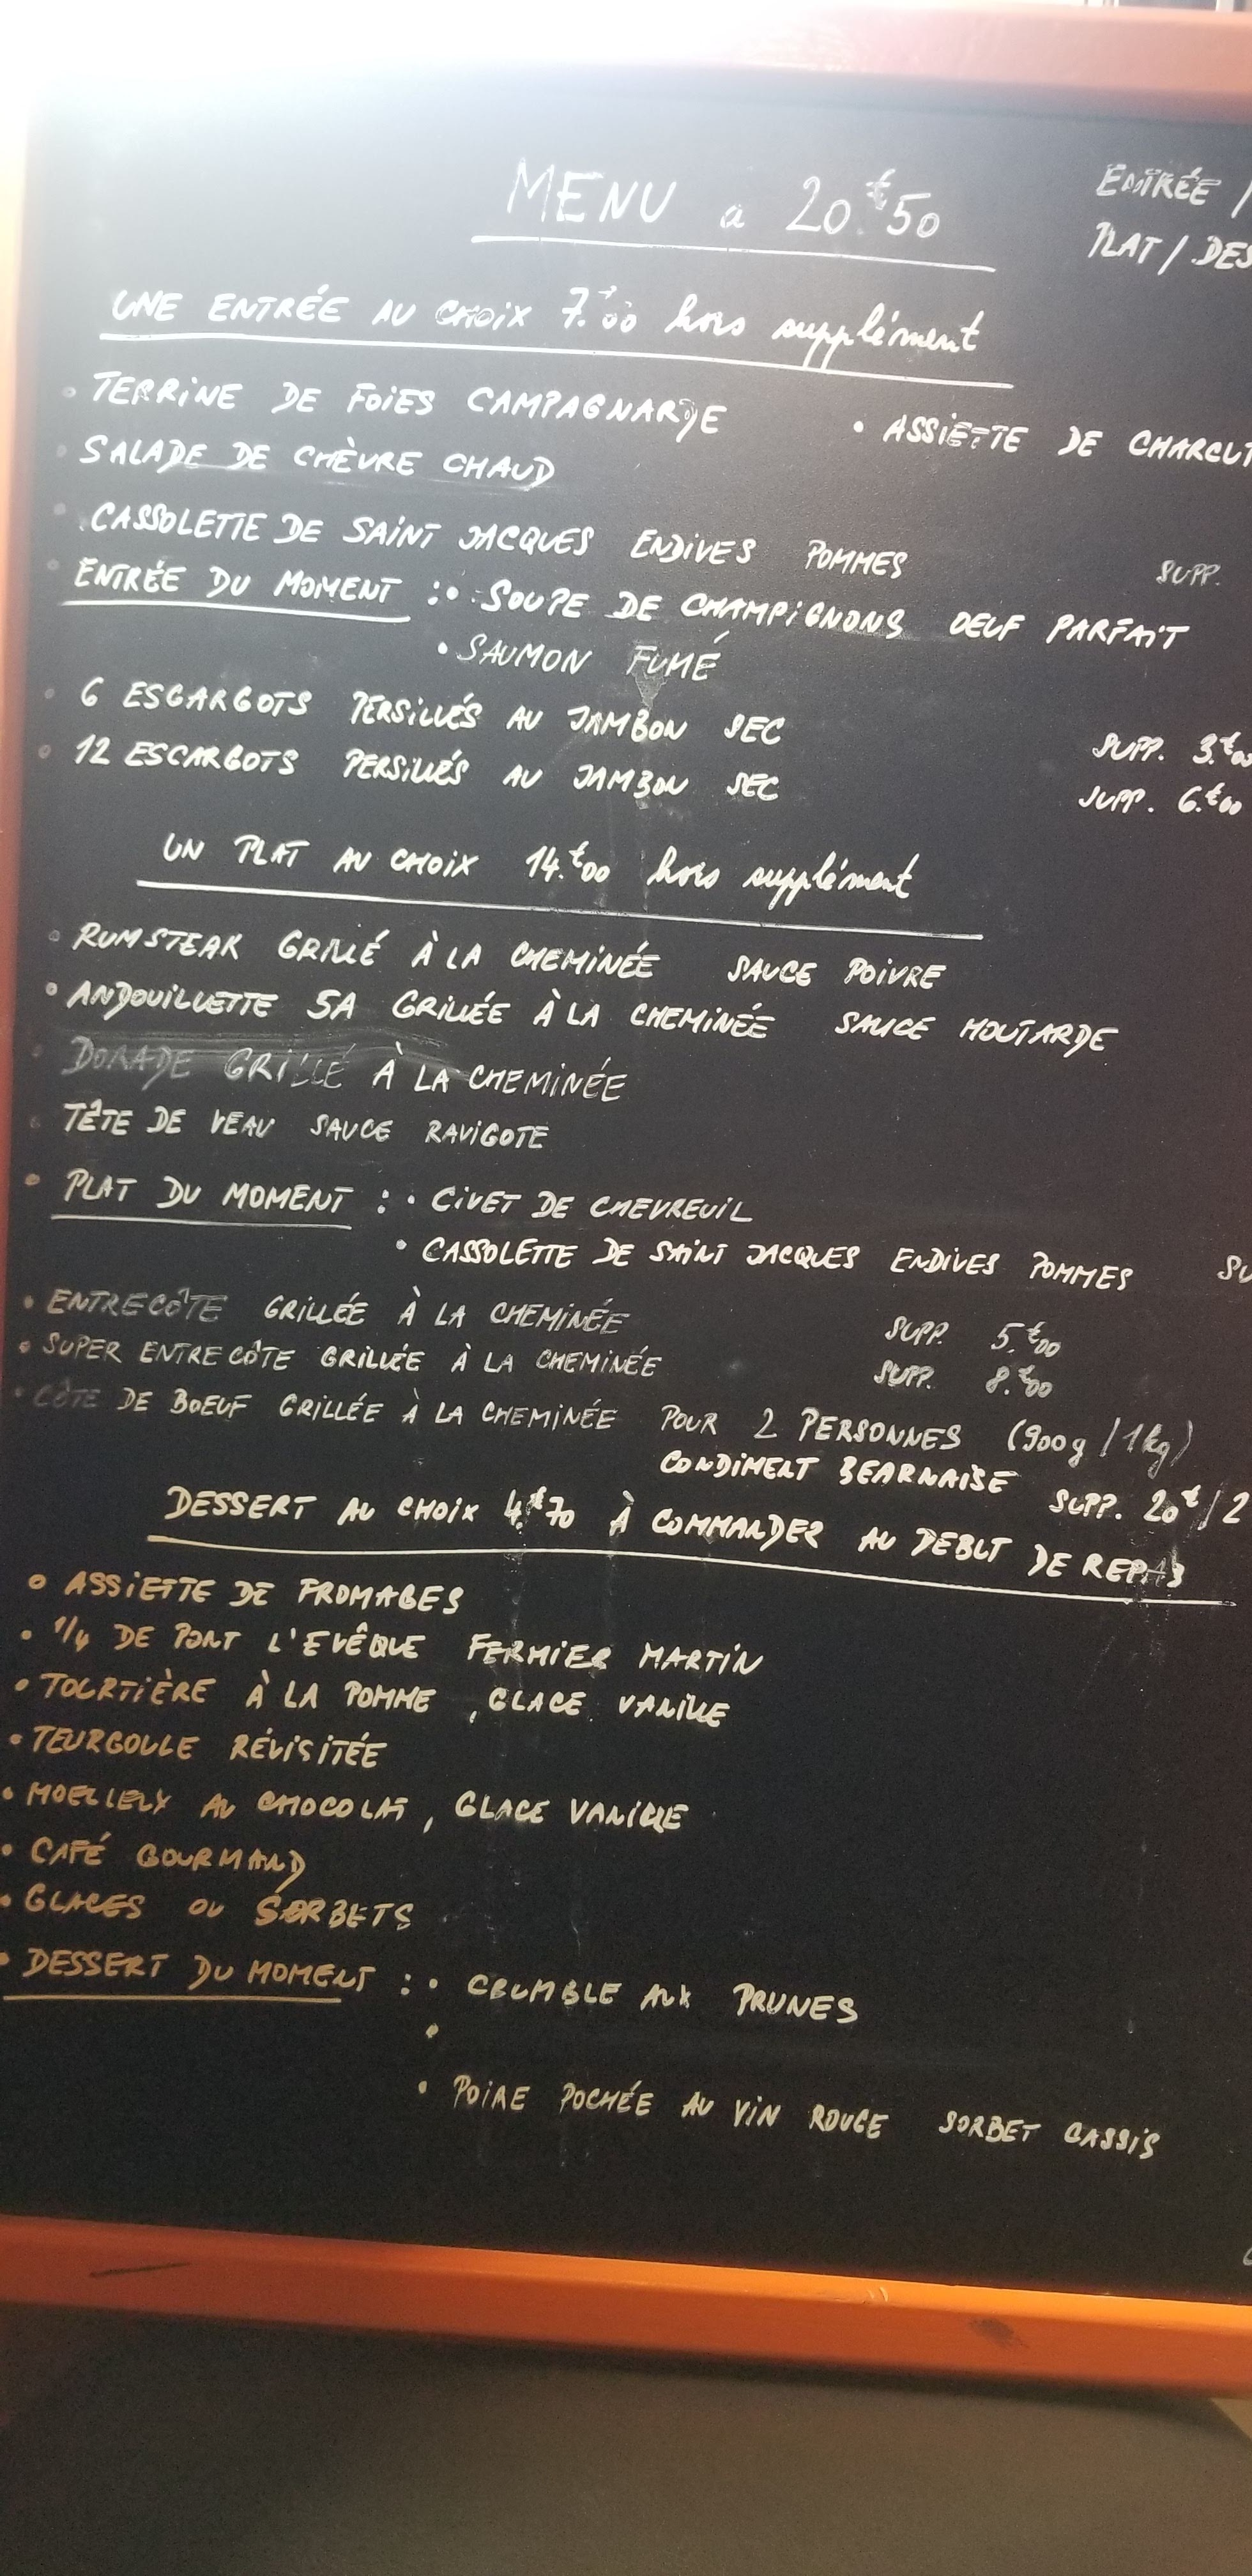 MENU a 20.€50
ENTRÉE /
PLAT / DES
UNE ENTRÉE AU CHOIX 7.€00 hors supplément
• TERRINE DE FOIES CAMPAGNARDE • ASSIETTE DE CHARCUT
• SALADE DE CHÈVRE CHAUD
• CASSOLETTE DE SAINT JACQUES ENDIVES POMMES SUPP.
• ENTRÉE DU MOMENT : • SOUPE DE CHAMPIGNONS OEUF PARFAIT
• SAUMON FUMÉ
• 6 ESCARGOTS PERSILLÉS AU JAMBON SEC SUPP. 3.€00
• 12 ESCARGOTS PERSILLÉS AU JAMBON SEC SUPP. 6.€00
UN PLAT AU CHOIX 14.€00 hors supplément
• RUMSTEAK GRILLÉ À LA CHEMINÉE SAUCE POIVRE
• ANDOUILLETTE 5A GRILLÉE À LA CHEMINÉE SAUCE MOUTARDE
• DORADE GRILLÉ À LA CHEMINÉE
• TÊTE DE VEAU SAUCE RAVIGOTE
• PLAT DU MOMENT : • CIVET DE CHEVREUIL
• CASSOLETTE DE SAINT JACQUES ENDIVES POMMES SU
• ENTRECÔTE GRILLÉE À LA CHEMINÉE SUPP. 5.€00
• SUPER ENTRECÔTE GRILLÉE À LA CHEMINÉE SUPP. 8.€00
• CÔTE DE BOEUF GRILLÉE À LA CHEMINÉE POUR 2 PERSONNES (900g / 1kg)
CONDIMENT BEARNAISE SUPP. 20€ / 2
DESSERT AU CHOIX 4.€70 À COMMANDER AU DEBUT DE REPAS
• ASSIETTE DE FROMAGES
• 1/4 DE PONT L'EVÊQUE FERMIER MARTIN
• TOURTIÈRE À LA POMME, GLACE VANILLE
• TEURGOULE RÉVISITÉE
• MOELLEUX AU CHOCOLAT, GLACE VANILLE
• CAFÉ GOURMAND
• GLACES OU SORBETS
• DESSERT DU MOMENT : • CRUMBLE AUX PRUNES
•
• POIRE POCHÉE AU VIN ROUGE SORBET CASSIS